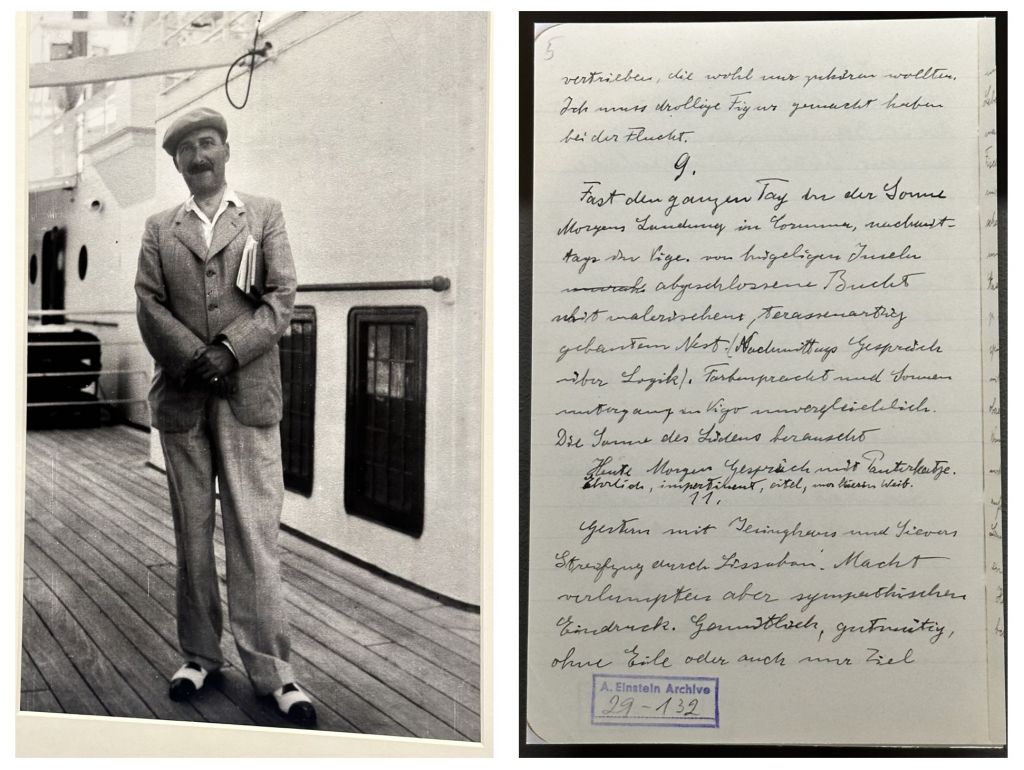 5
vertrieben, die wohl nur zuhören wollten.
Ich muss drollige Figur gemacht haben
bei der Flucht.
9.
Fast den ganzen Tag in der Sonne
Morgens Landung in Corunna, nachmit-
tags in Vigo. von hügeligen Inseln
abgeschlossene Bucht
mit malerischem, terassenartig
gebautem Nest. (Nachmittags Gespräch
über Logik). Farbenpracht und Sonnen
untergang in Vigo unvergleichlich.
Die Sonne des Südens berauscht
Heute Morgen Gespräch mit Panterkatze.
Ehrlich, impertinent, eitel, Weib.
11.
Gestern mit Jesinghaus und Sievers
Streifzug durch Lissabon. Macht
verlumpten aber sympathischen
Eindruck. Gemütlich, gutmütig,
ohne Eile oder auch nur Ziel
A. Einstein Archive
29-132